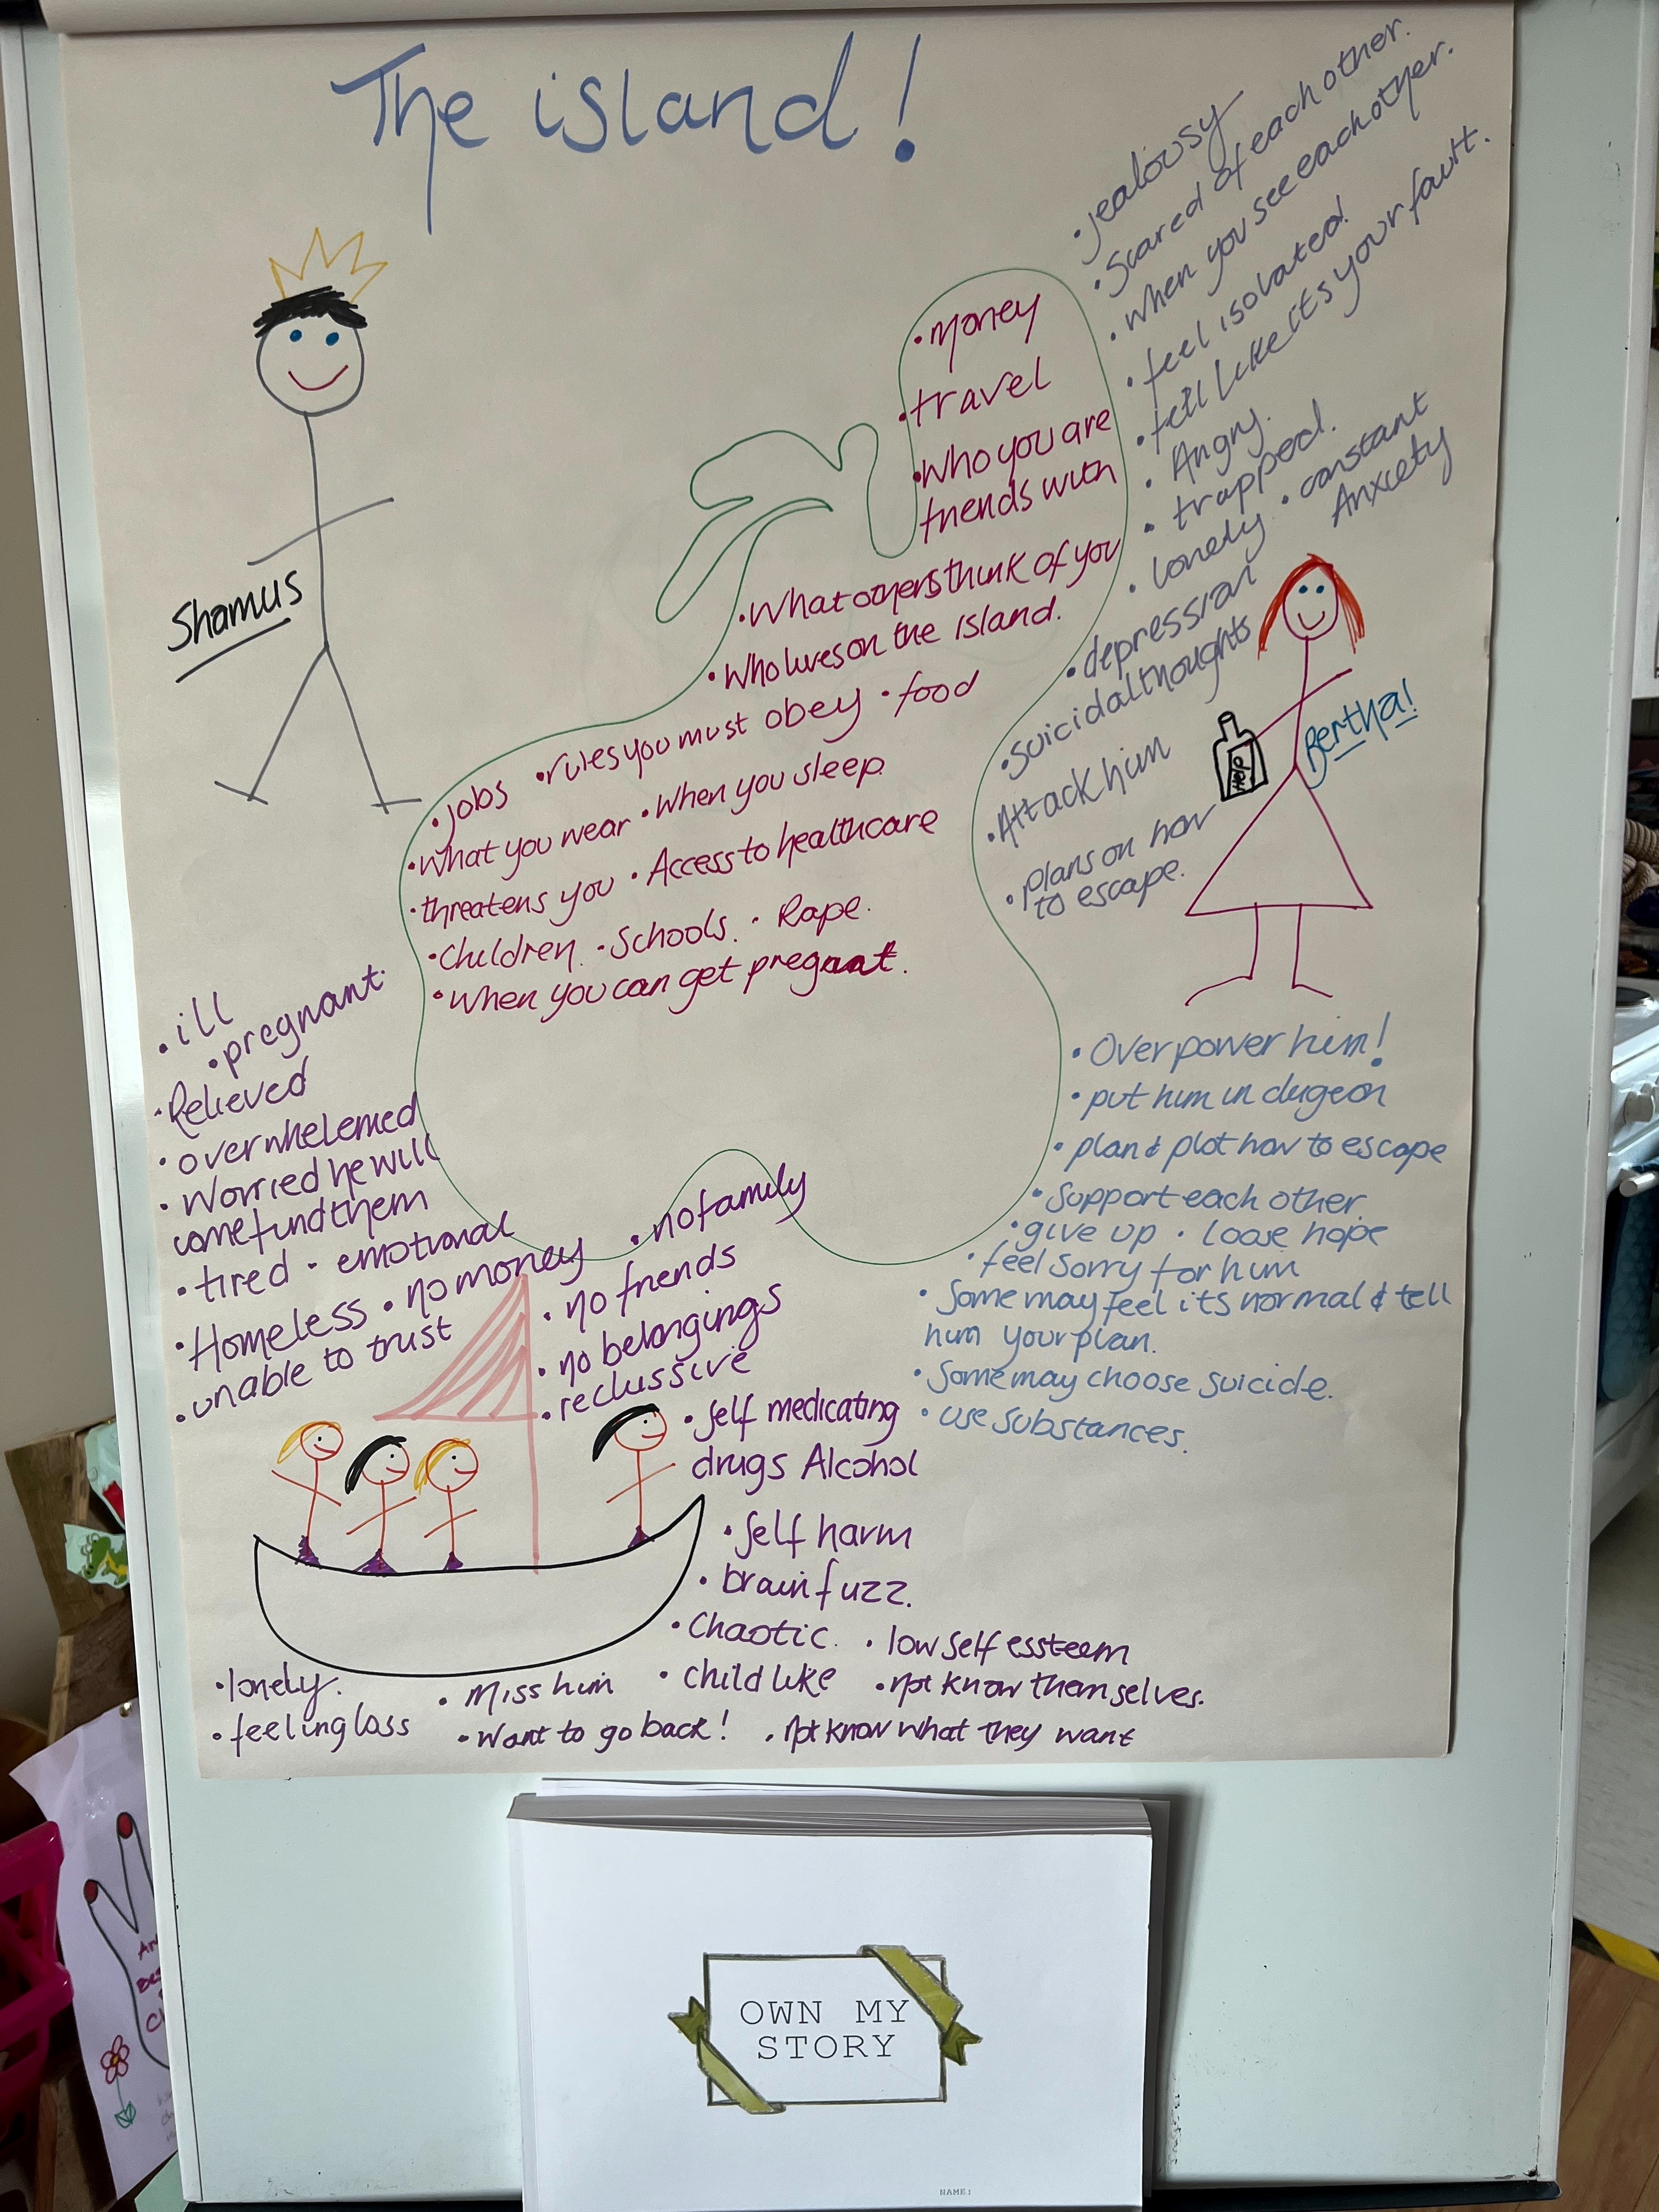 The island!
Shamus
• Money
• travel
• Who you are
friends with
• What others think of you
• Who lives on the island.
• jobs • rules you must obey • food
• What you wear • When you sleep.
• threatens you • Access to healthcare
• Children. • Schools. • Rape.
• When you can get pregnant.
• jealousy
• Scared of each other.
• when you see each other.
• feel isolated!
• fell like its your fault.
• Angry.
• trapped.
• lonely • constant
Anxiety
• depression
• Suicidal thoughts
• Attack him
• plans on how
to escape.
Help
Bertha!
• Overpower him!
• put him in dugeon
• plan & plot how to escape
• Support each other.
• give up • loose hope
• feel sorry for him
• Some may feel its normal & tell
him your plan.
• Some may choose suicide.
• use substances.
• ill
• pregnant.
• Relieved
• overwhelemed
• Worried he will
come fund them
• tired • emotional
• Homeless • no money
• unable to trust
• no family
• no friends
• no belongings
• reclussive
• Self medicating
drugs Alcohol
• Self harm
• brain fuzz.
• Chaotic. • low self essteem
• lonely. • Miss him • child like • not know themselves.
• feeling loss • Want to go back! • Not know what they want
OWN MY
STORY
NAME: